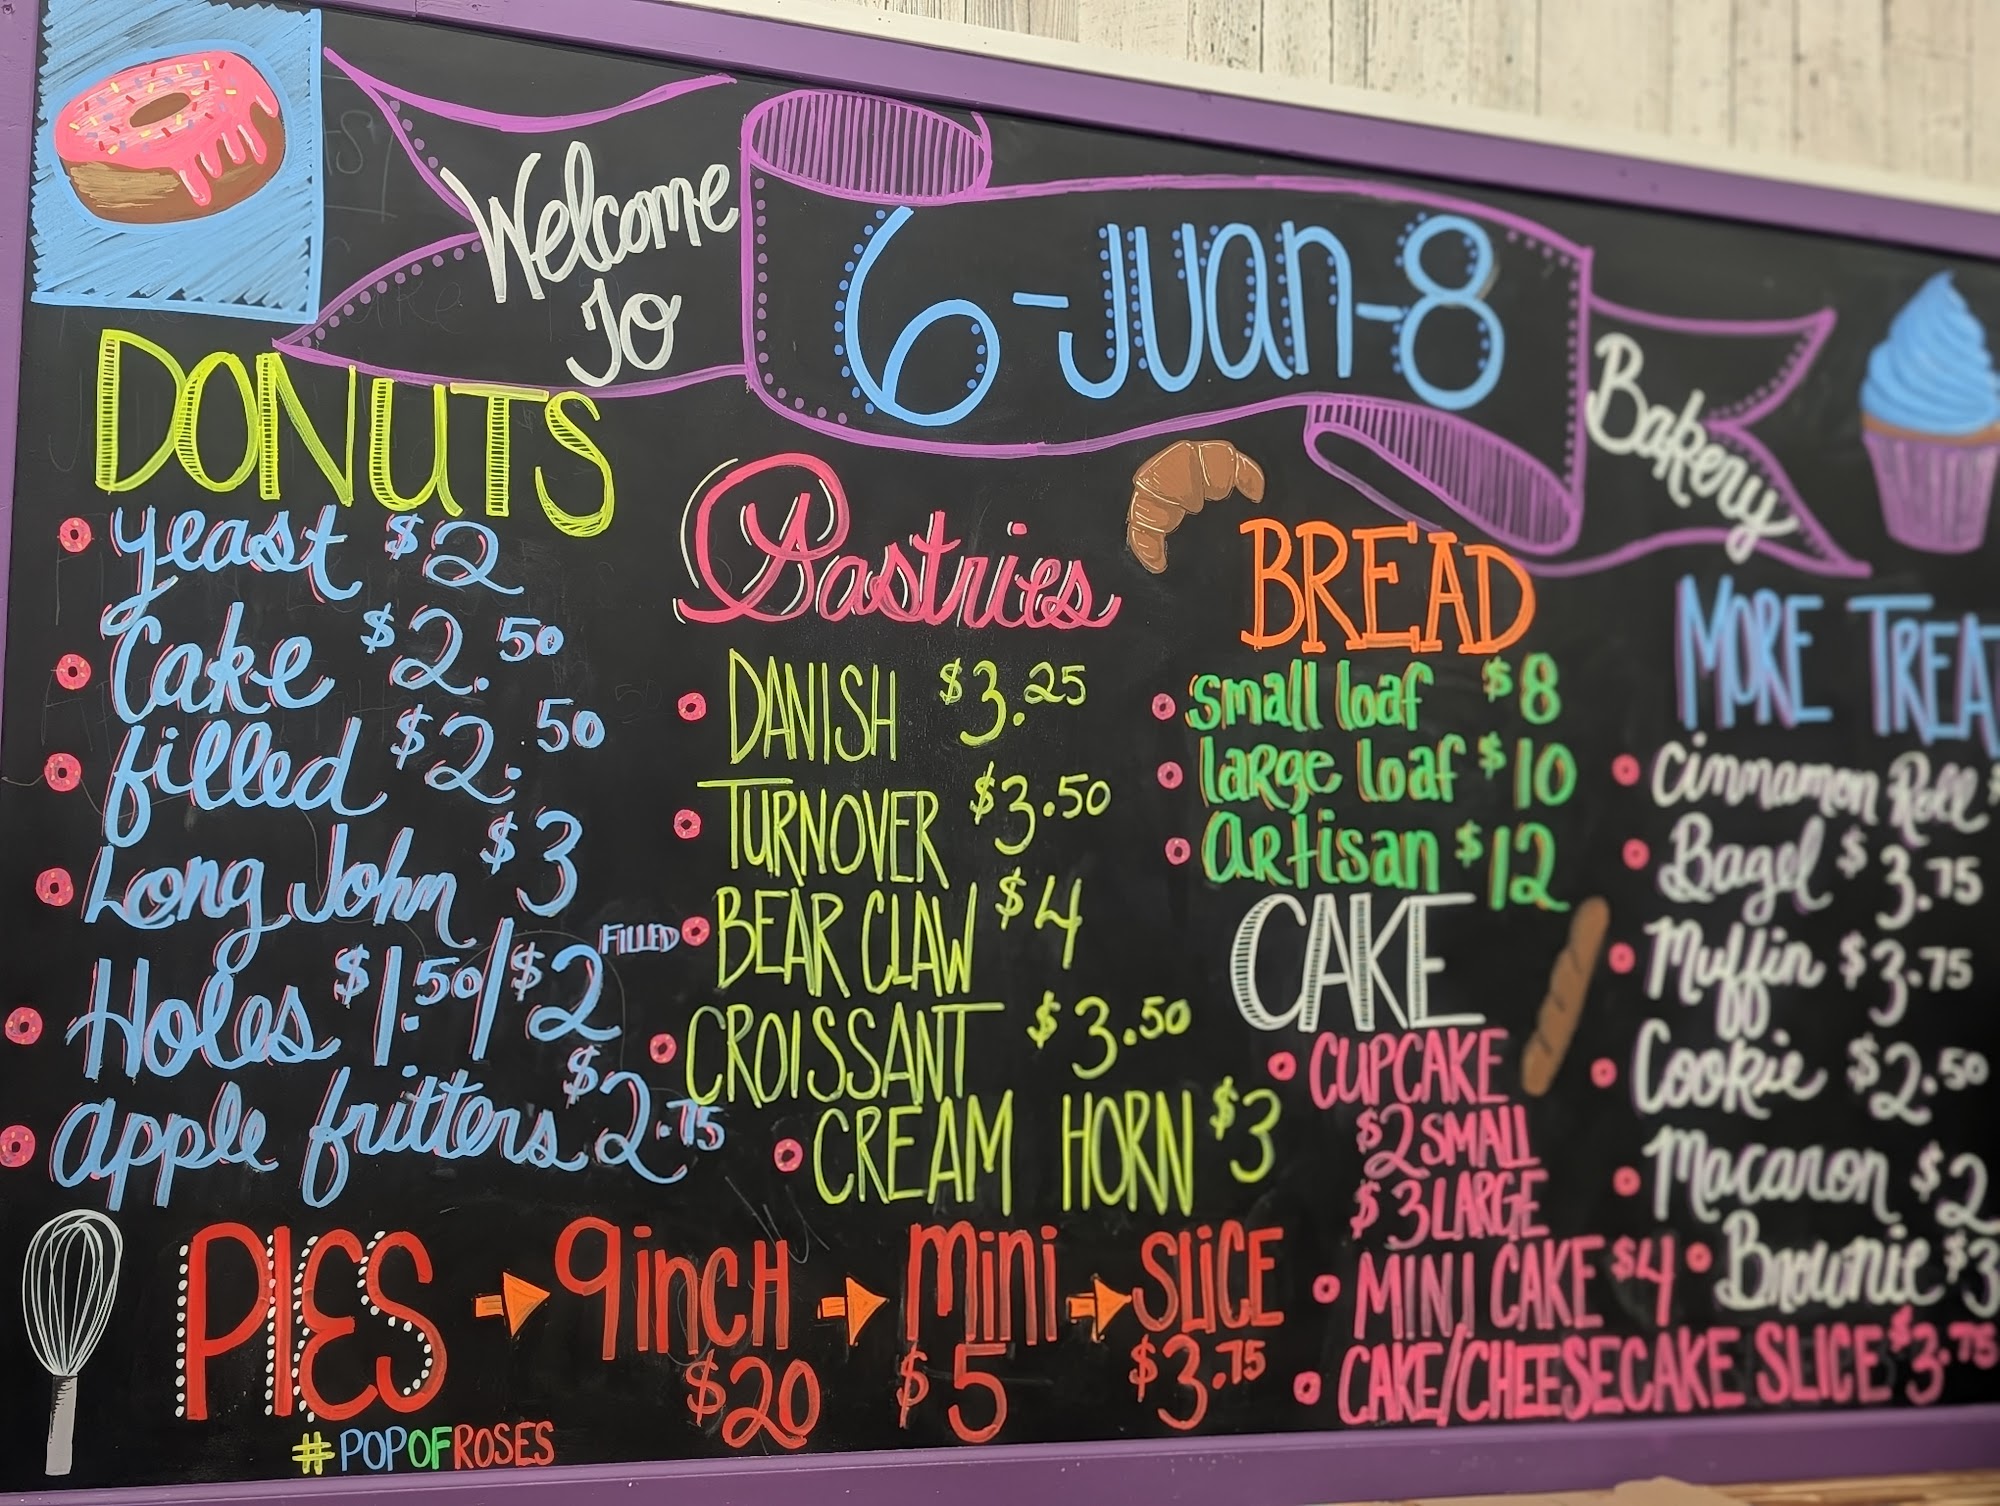 Welcome
To
6-Juan-8
Bakery
DONUTS
yeast $2
Cake $2.50
filled $2.50
Long John $3
Holes $1.50/$2 FILLED
apple fritters $2.75
Pastries
DANISH $3.25
TURNOVER $3.50
BEAR CLAW $4
CROISSANT $3.50
CREAM HORN $3
BREAD
small loaf $8
large loaf $10
artisan $12
CAKE
CUPCAKE
$2 SMALL
$3 LARGE
MINI CAKE $4
CAKE/CHEESECAKE SLICE $3.75
MORE TREAT
Cinnamon Roll $
Bagel $3.75
Muffin $3.75
Cookie $2.50
Macaron $2
Brownie $3
PIES 9inch mini SLiCE
$20 $5 $3.75
#POPOFROSES